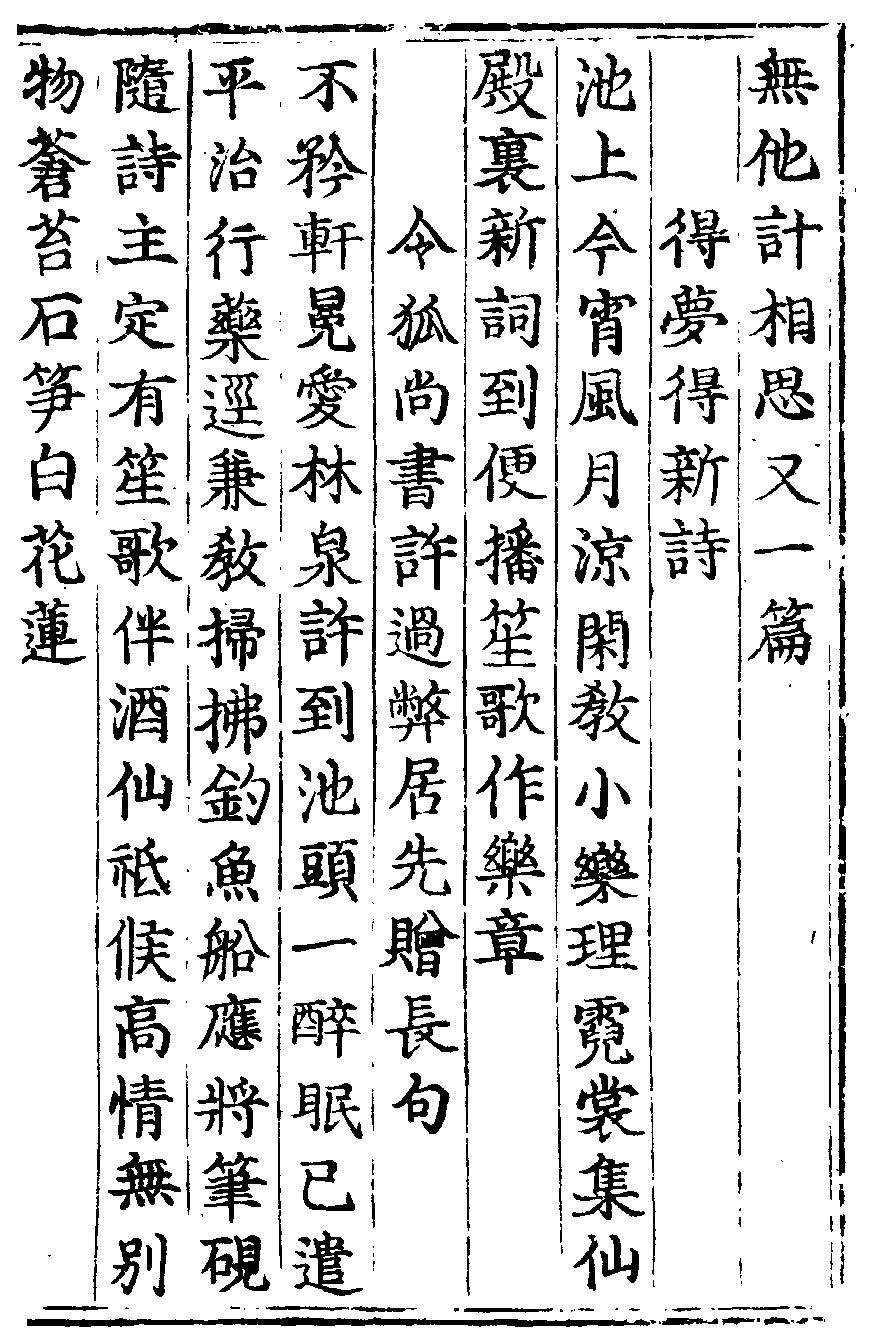 無他計相思又一篇
得夢得新詩
池上今宵風月涼閑教小樂理霓裳集仙
殿裏新詞到便播笙歌作樂章
令狐尚書許過弊居先贈長句
不矜軒冕愛林泉許到池頭一醉眠已遣
平治行藥逕兼教掃拂釣魚船應將筆硯
隨詩主定有笙歌伴酒仙祗候高情無別
物蒼苔石笋白花蓮